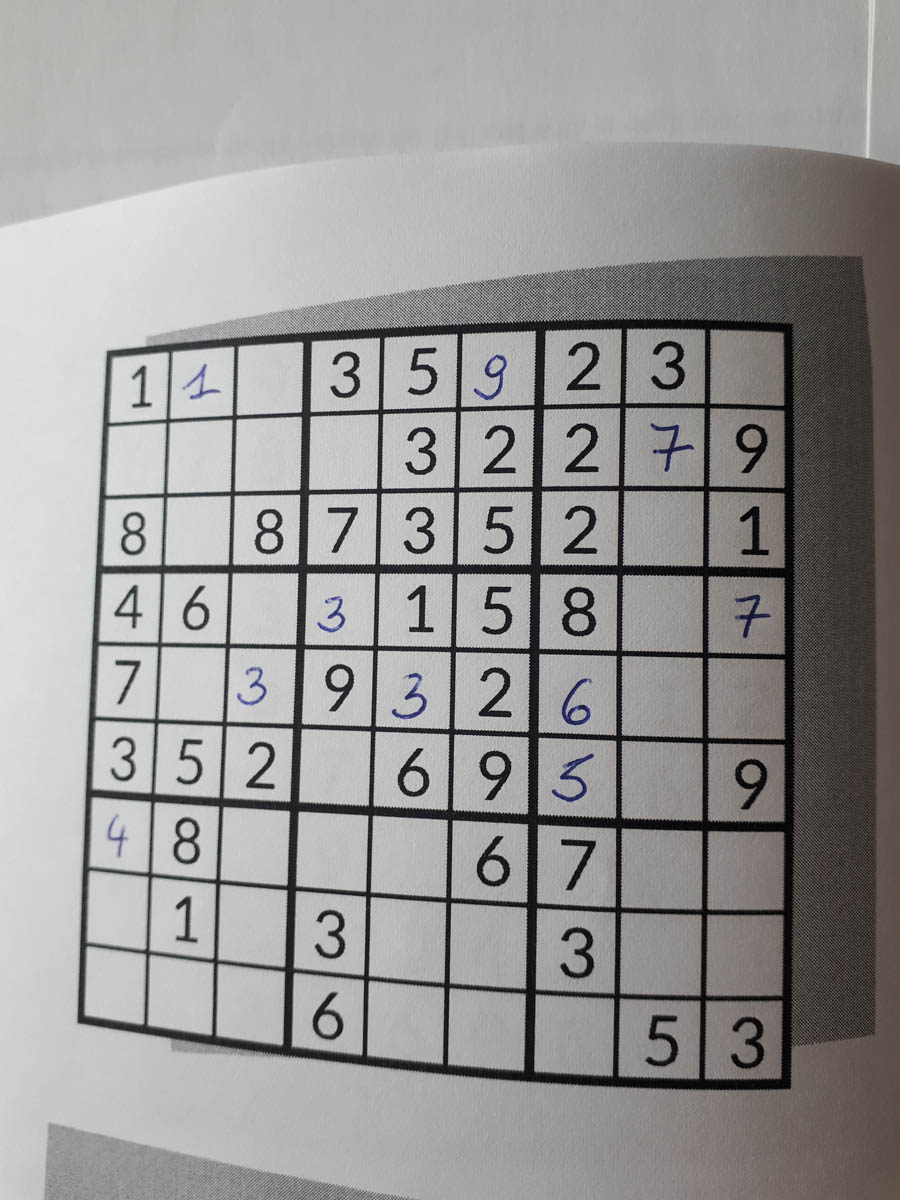 1 1 3 5 9 2 3
3 2 2 7 9
8 8 7 3 5 2 1
4 6 3 1 5 8 7
7 3 9 3 2 6
3 5 2 6 9 5 9
4 8 6 7
1 3 3
6 5 3